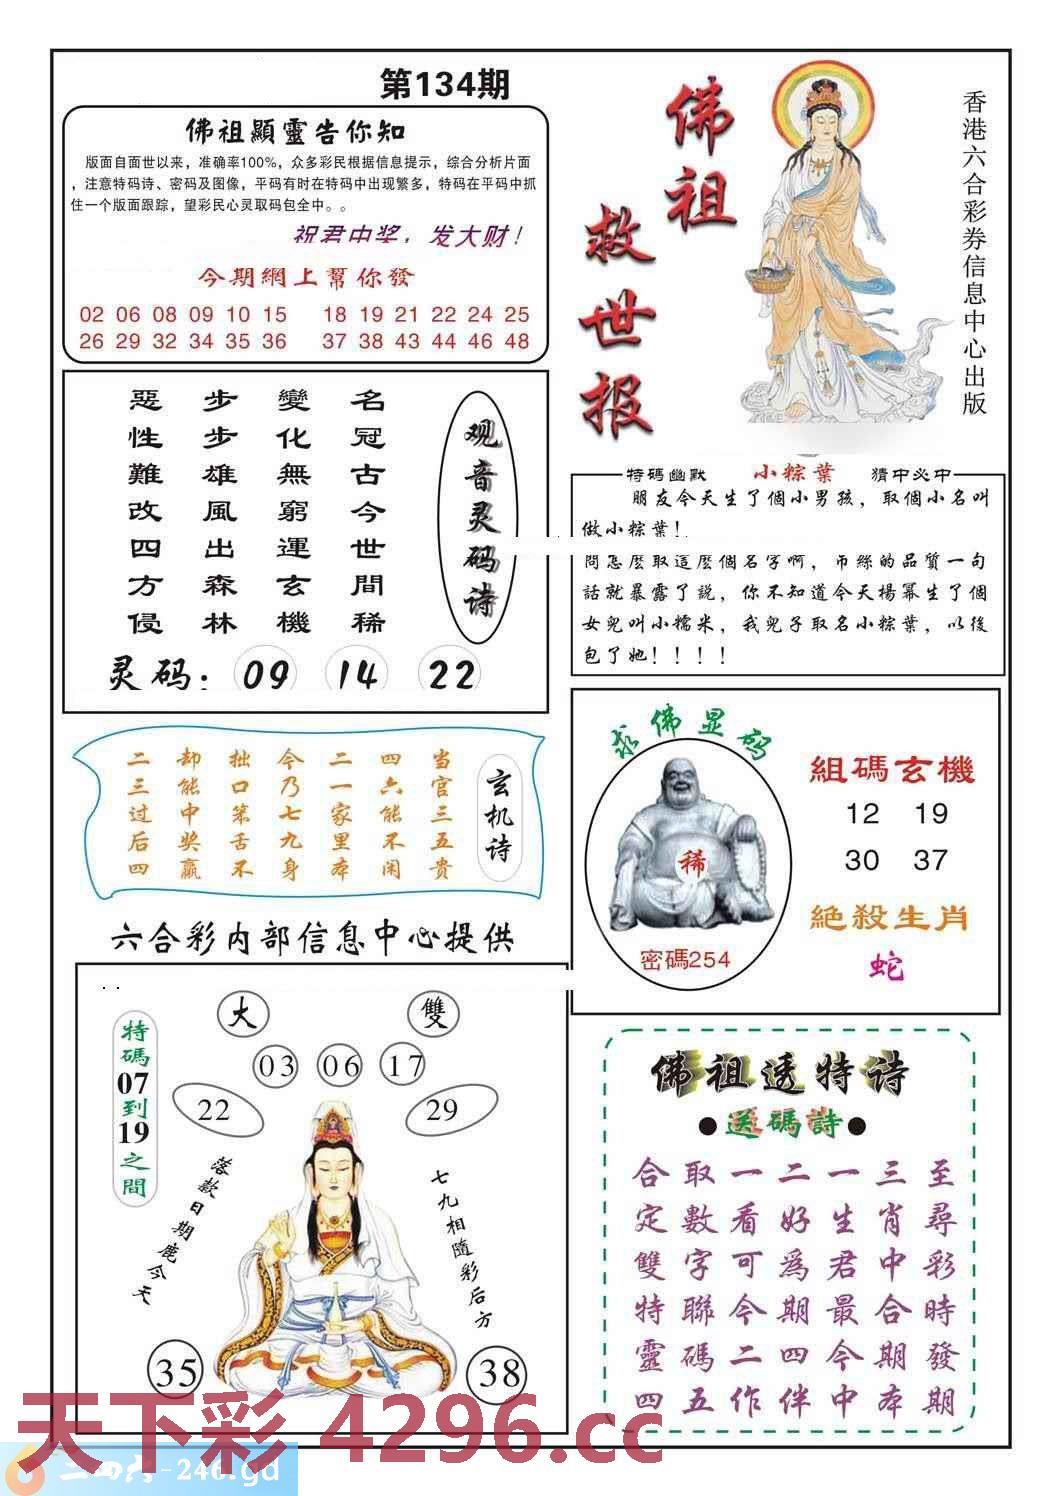 第134期
佛祖顯靈告你知
版面自面世以来，准确率100%，众多彩民根据信息提示，综合分析片面
，注意特码诗、密码及图像，平码有时在特码中出现繁多，特码在平码中抓
住一个版面跟踪，望彩民心灵取码包全中。。
祝君中奖，发大财！
今期網上幫你發
02 06 08 09 10 15 18 19 21 22 24 25
26 29 32 34 35 36 37 38 43 44 46 48
佛祖
救世报
香港六合彩券信息中心出版
观音灵码诗
名冠古今世間稀
變化無窮運玄機
步步雄風出森林
惡性難改四方侵
灵码：09 14 22
特碼幽默 小粽葉 猜中必中
朋友今天生了個小男孩，取個小名叫
做小粽葉！
問怎麽取這麽個名字啊，币絲的品質一句
話就暴露了説，你不知道今天楊冪生了個
女兒叫小糯米，我兒子取名小粽葉，以後
包了她！！！！
玄机诗
当官三五贵
四六能不闲
二一家里本
今乃七九身
拙口笨舌不
却能中奖赢
二三过后四
求佛显码
稀
密碼254
組碼玄機
12 19
30 37
絕殺生肖
蛇
六合彩内部信息中心提供
特碼07到19之間
大
雙
03 06 17
22
29
落款日期鹿今天
七九相隨彩后方
35
38
佛祖透特诗
●送碼詩●
至尋彩時發期
三肖中合期本
一生君最今中
二好為期四伴
一看可今二作
取數字聯碼五
合定雙特靈四
天下彩 4296.cc
二四六-246.gd